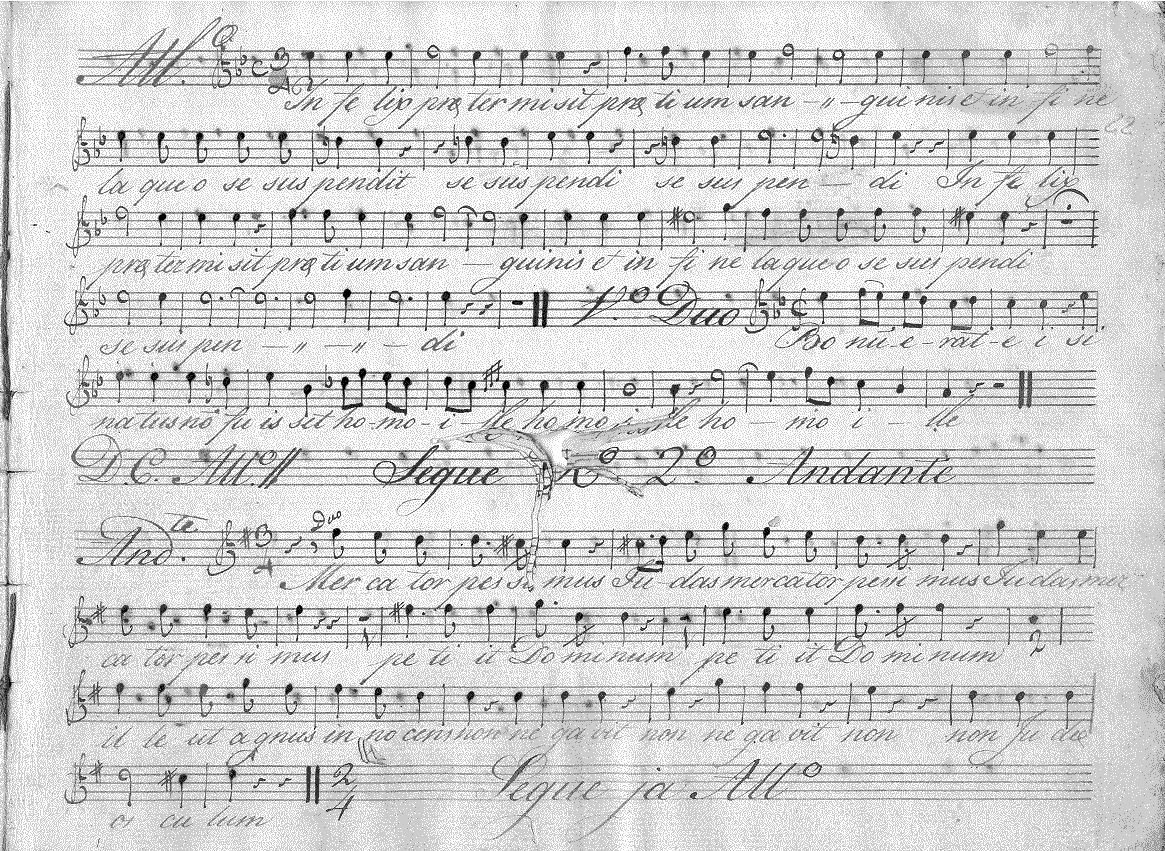 All.º 3 4
In fe lix præ ter mi sit præ ti um san - " - gui nis et in fi ne
la que o se sus pendit se sus pendi se sus pen - di In fe lix
præ ter mi sit præ ti um san - gui nis et in fi ne la que o se sus pendi
se sus pen - " - " - di V.º Duo Bo nu - e - rat - e i si
na tus nō fu is set ho - mo - i - lle ho mo i lle ho - mo i - lle
D.C. All.º // Segue Nº 2º Andante
And.te 3 4 Duo
Mer ca tor pes si mus Ju - das mer ca tor pessi mus Ju das mer
ca tor pes si mus pe ti it Do mi num pe ti it Do mi num
1 1 2
il le ut a gnus in no cens non ne ga vit non ne ga vit non non Ju dæ
2 4 Segue ja All.º
os cu lum